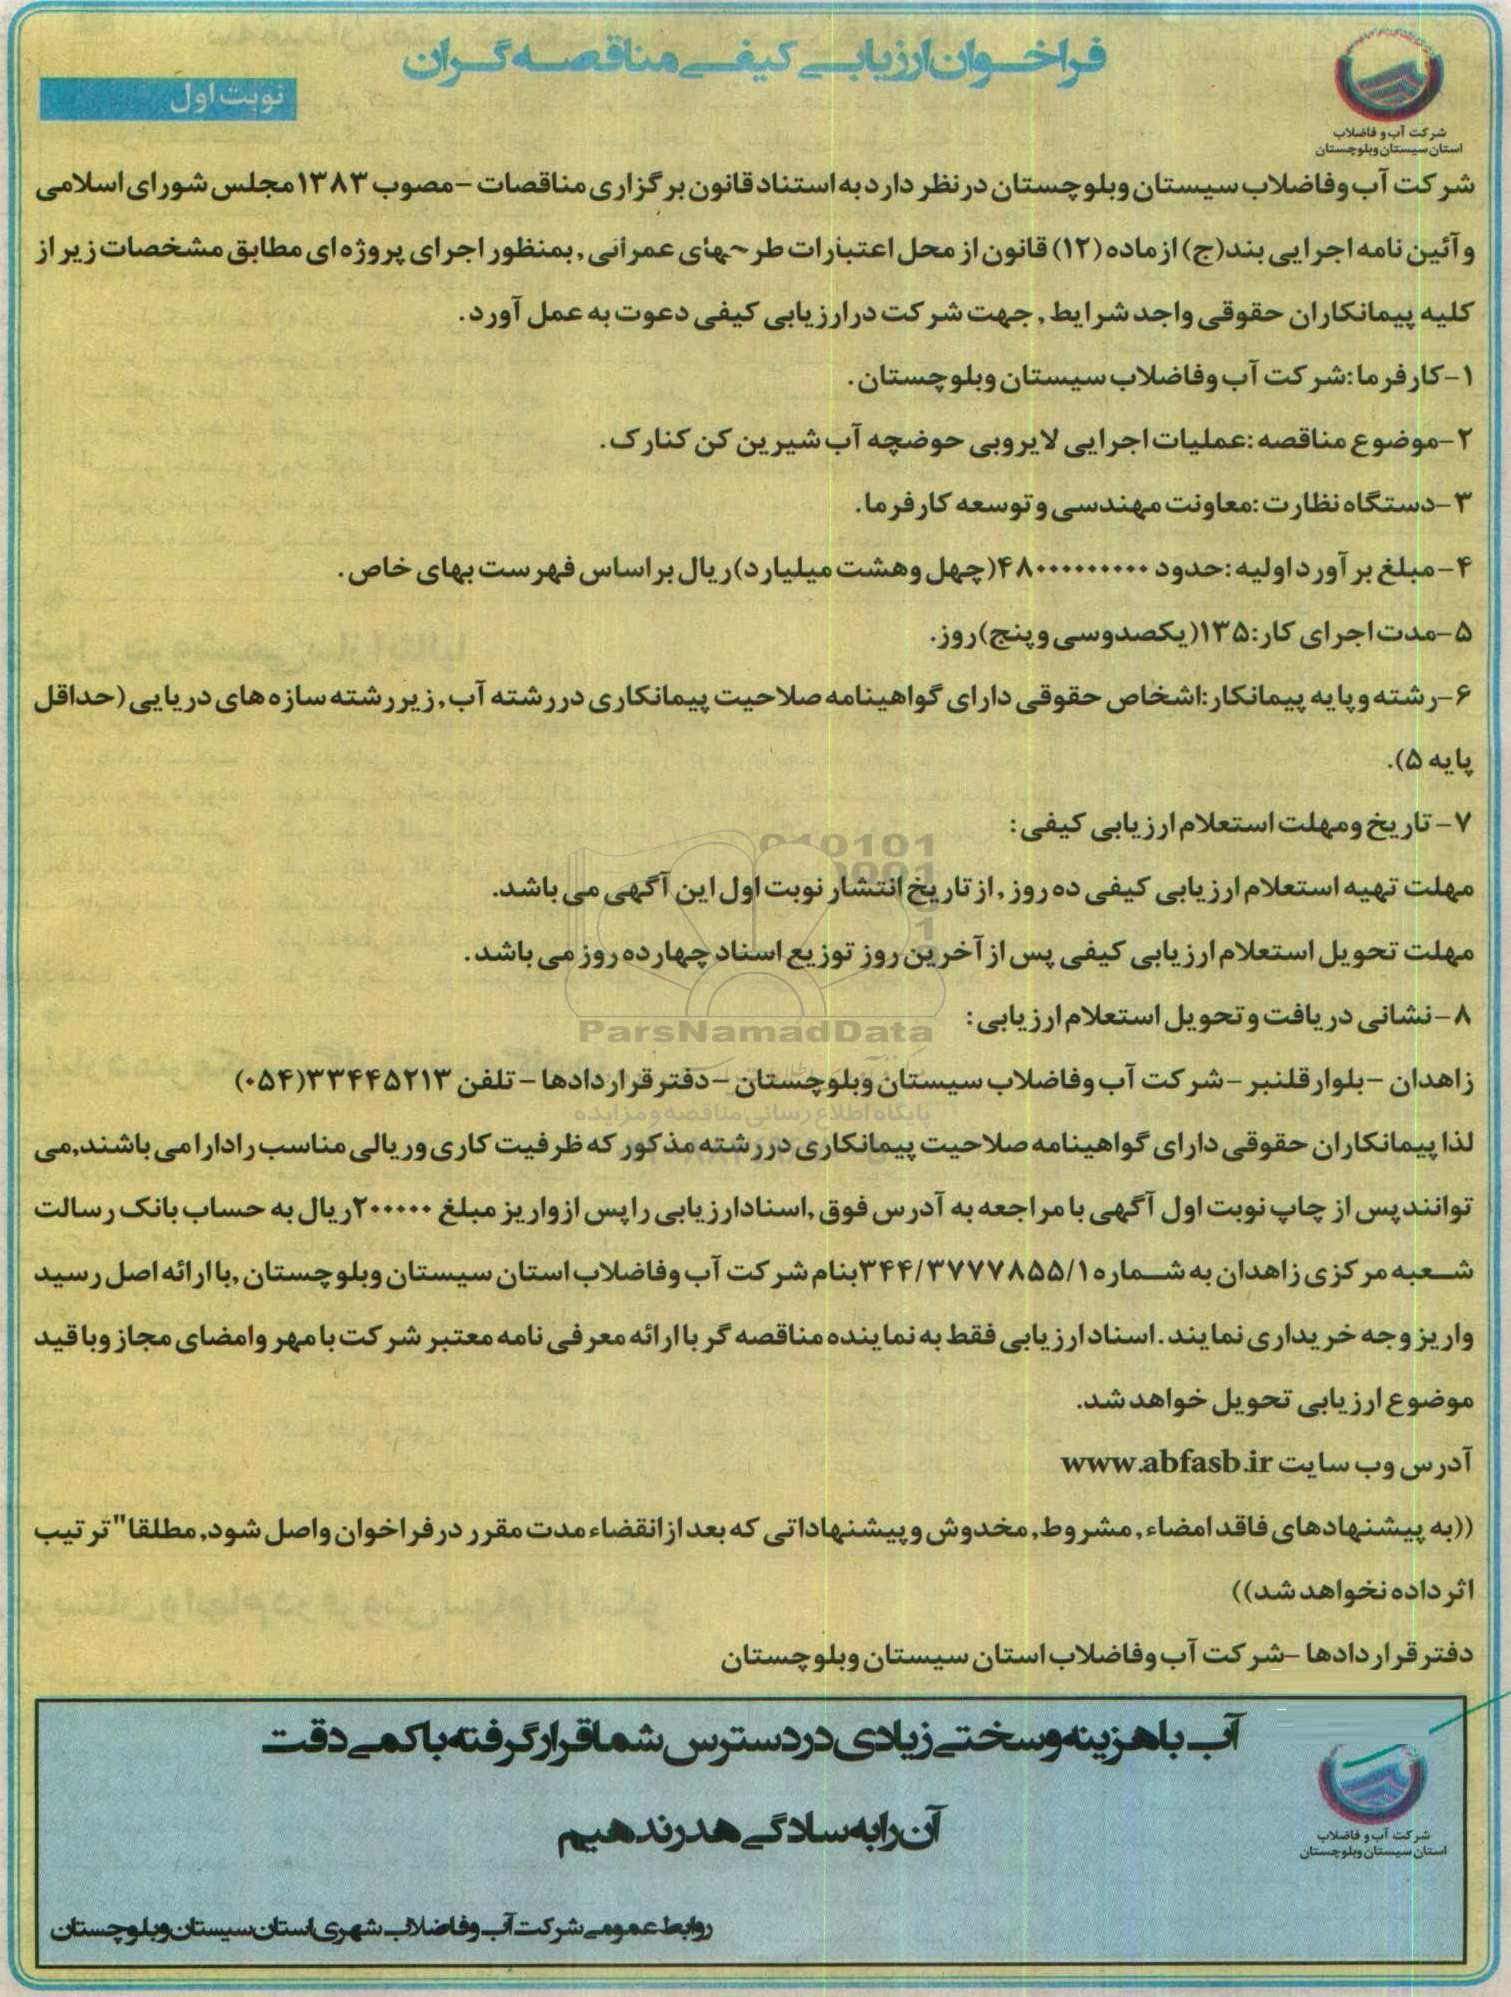 فراخوان ارزیابی کیفی مناقصه گران
نوبت اول
شرکت آب و فاضلاب
استان سیستان وبلوچستان
شرکت آب وفاضلاب سیستان وبلوچستان درنظر دارد به استناد قانون برگزاری مناقصات -مصوب ۱۳۸۳ مجلس شورای اسلامی
و آئین نامه اجرایی بند(ج) ازماده (۱۲) قانون از محل اعتبارات طرحهای عمرانی , بمنظور اجرای پروژه ای مطابق مشخصات زیر از
کلیه پیمانکاران حقوقی واجد شرایط , جهت شرکت درارزیابی کیفی دعوت به عمل آورد.
۱-کارفرما:شرکت آب وفاضلاب سیستان وبلوچستان.
۲-موضوع مناقصه :عملیات اجرایی لایروبی حوضچه آب شیرین کن کنارک.
۳-دستگاه نظارت :معاونت مهندسی و توسعه کارفرما.
۴-مبلغ برآورد اولیه :حدود ۴۸۰۰۰۰۰۰۰۰۰(چهل وهشت میلیارد)ریال براساس فهرست بهای خاص.
۵-مدت اجرای کار:۱۳۵(یکصدوسی و پنج)روز.
۶-رشته وپایه پیمانکار:اشخاص حقوقی دارای گواهینامه صلاحیت پیمانکاری دررشته آب,زیررشته سازه های دریایی (حداقل
پایه ۵).
۷- تاریخ ومهلت استعلام ارزیابی کیفی :
مهلت تهیه استعلام ارزیابی کیفی ده روز , از تاریخ انتشار نوبت اول این آگهی می باشد.
مهلت تحویل استعلام ارزیابی کیفی پس از آخرین روز توزیع اسناد چهارده روز می باشد.
۸-نشانی دریافت و تحویل استعلام ارزیابی :
ParsNamadData
زاهدان -بلوار قلنبر -شرکت آب وفاضلاب سیستان وبلوچستان -دفتر قراردادها - تلفن ۳۳۴۴۵۲۱۳(۰۵۴)
پایگاه اطلاع رسانی مناقصه و مزایده
لذا پیمانکاران حقوقی دارای گواهینامه صلاحیت پیمانکاری دررشته مذکور که ظرفیت کاری وریالی مناسب رادارا می باشند,می
توانند پس از چاپ نوبت اول آگهی با مراجعه به آدرس فوق ,اسنادارزیابی راپس ازواریز مبلغ ۲۰۰۰۰۰ریال به حساب بانک رسالت
شعبه مرکزی زاهدان به شماره ۳۴۴/۳۷۷۷۸۵۵/۱بنام شرکت آب وفاضلاب استان سیستان وبلوچستان ,با ارائه اصل رسید
واریز وجه خریداری نمایند.اسناد ارزیابی فقط به نماینده مناقصه گر با ارائه معرفی نامه معتبر شرکت با مهر وامضای مجاز وباقید
موضوع ارزیابی تحویل خواهد شد.
آدرس وب سایت www.abfasb.ir
((به پیشنهادهای فاقد امضاء,مشروط,مخدوش وپیشنهاداتی که بعد ازانقضاء مدت مقرر درفراخوان واصل شود,مطلقا" ترتیب
اثر داده نخواهد شد))
دفتر قراردادها -شرکت آب وفاضلاب استان سیستان وبلوچستان
آب باهزینه وسختی زیادی دردسترس شماقرارگرفته باکمی دقت
آن رابه سادگی هدر ندهیم
شرکت آب و فاضلاب
استان سیستان وبلوچستان
روابط عمومی شرکت آب وفاضلاب شهری استان سیستان وبلوچستان